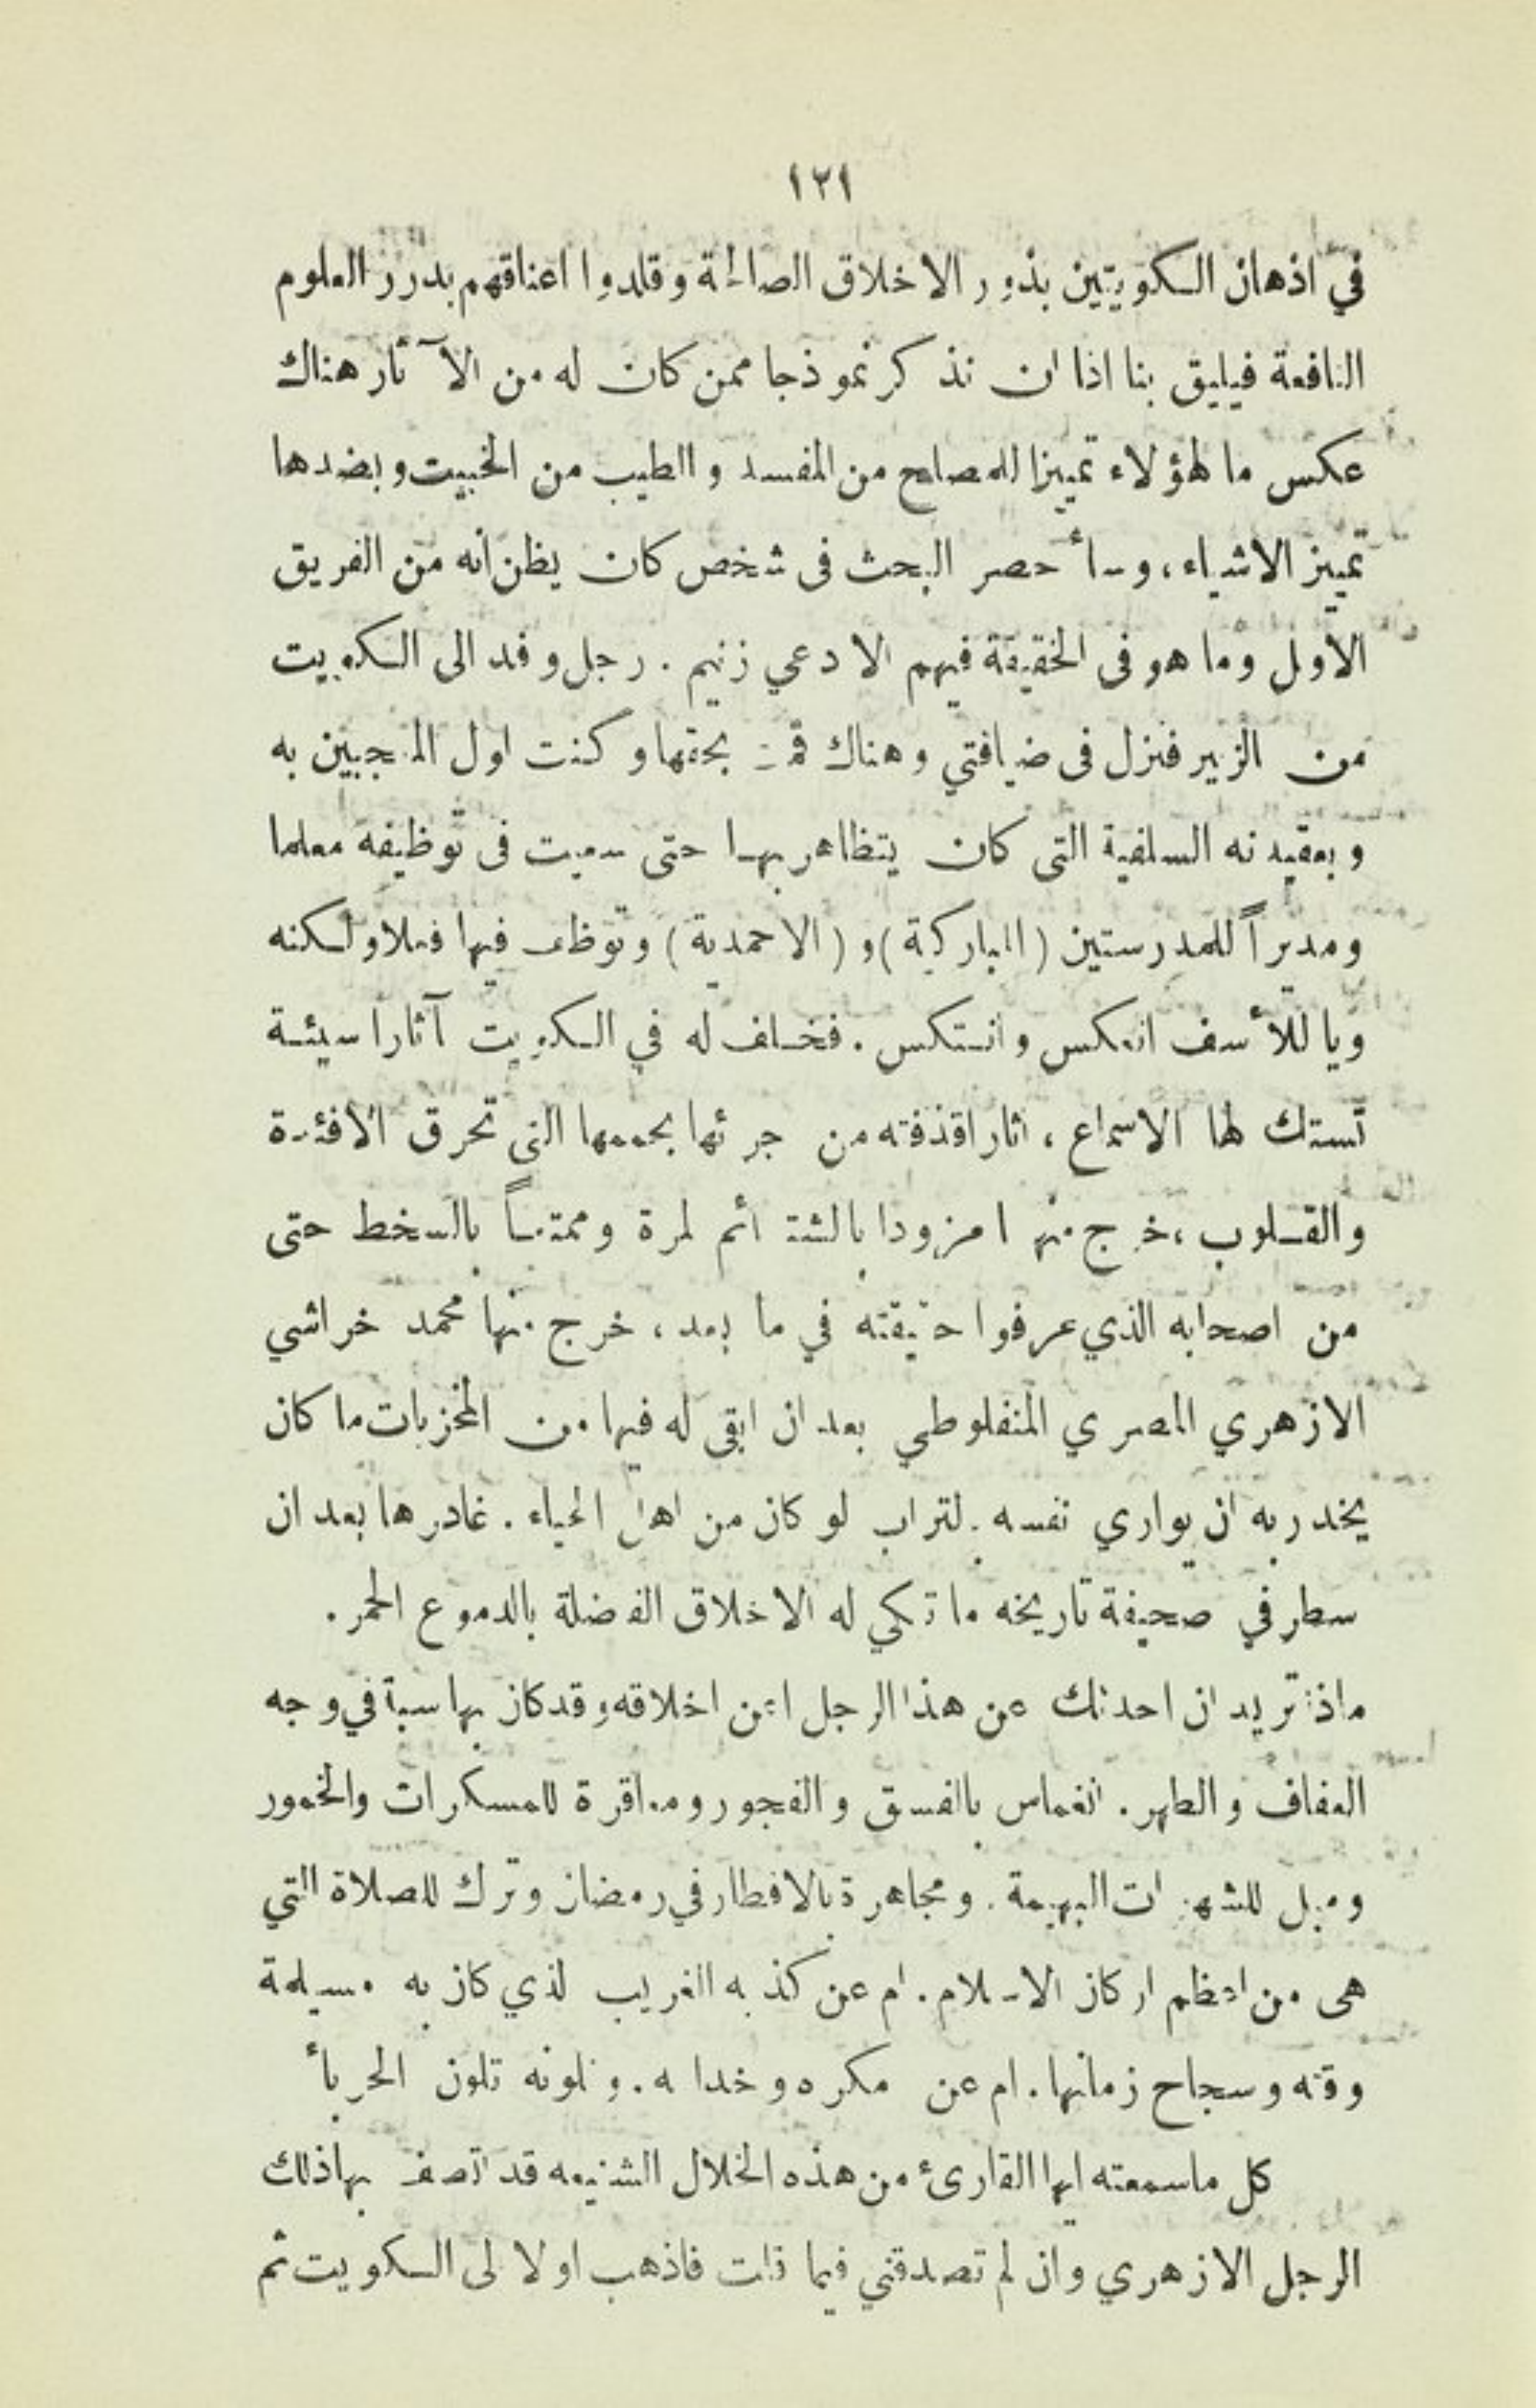 ١٢١
في اذهان الكويتيين بذور الاخلاق الصالحة وقلدوا اعناقهم بدرر العلوم
النافعة فيليق بنا اذا ان نذكر نموذجا ممن كان له من الآثار هناك
عكس ما لهؤلاء تمييزا للمصلح من المفسد والطيب من الخبيث وبضدها
تميز الاشياء، وسأحصر البحث فى شخص كان يظن انه من الفريق
الاول وما هو فى الحقيقة فيهم الا دعي زنيم. رجل وفد الى الكويت
من الزبير فنزل فى ضيافتي وهناك قمت بحقها وكنت اول المعجبين به
وبعقيدته السلفية التى كان يتظاهر بها حتى سعيت فى توظيفه معلما
ومديراً للمدرستين (المباركية) و (الاحمدية) وتوظف فيها فعلا ولكنه
ويا للأسف انعكس وانتكس. فخلف له في الكويت آثارا سيئة
تستك لها الاسماع، اثارا قذفته من جرائها بحممها التى تحرق الافئدة
والقلوب، خرج منها مزودا بالشتائم المرة وممتعاً بالسخط حتى
من اصحابه الذي عرفوا حقيقته في ما بعد، خرج منها محمد خراشي
الازهري المصري المنفلوطي بعد ان ابقى له فيها من المخزيات ما كان
يخدر به ان يواري نفسه بالتراب لو كان من اهل الحياء. غادرها بعد ان
سطر في صحيفة تاريخه ما تبكي له الاخلاق الفاضلة بالدموع الحمر.
ماذا تريد ان احدثك عن هذا الرجل اعن اخلاقه وقد كان بها سبة في وجه
العفاف والطهر. انغماس بالفسق والفجور ومعاقرة للمسكرات والخمور
وميل للشهوات البهيمة. ومجاهرة بالافطار في رمضان وترك للصلاة التي
هى من اعظم اركان الاسلام. ام عن كذبه الغريب الذي كان به مسيلمة
وقته وسجاح زمانها. ام عن مكره وخداعه. وتلونه تلون الحربأ
كل ماسمعته ايها القارئ من هذه الخلال الشنيعه قد اتصف بهاذلك
الرجل الازهري وان لم تصدقني فيما قلت فاذهب اولا الى الكويت ثم